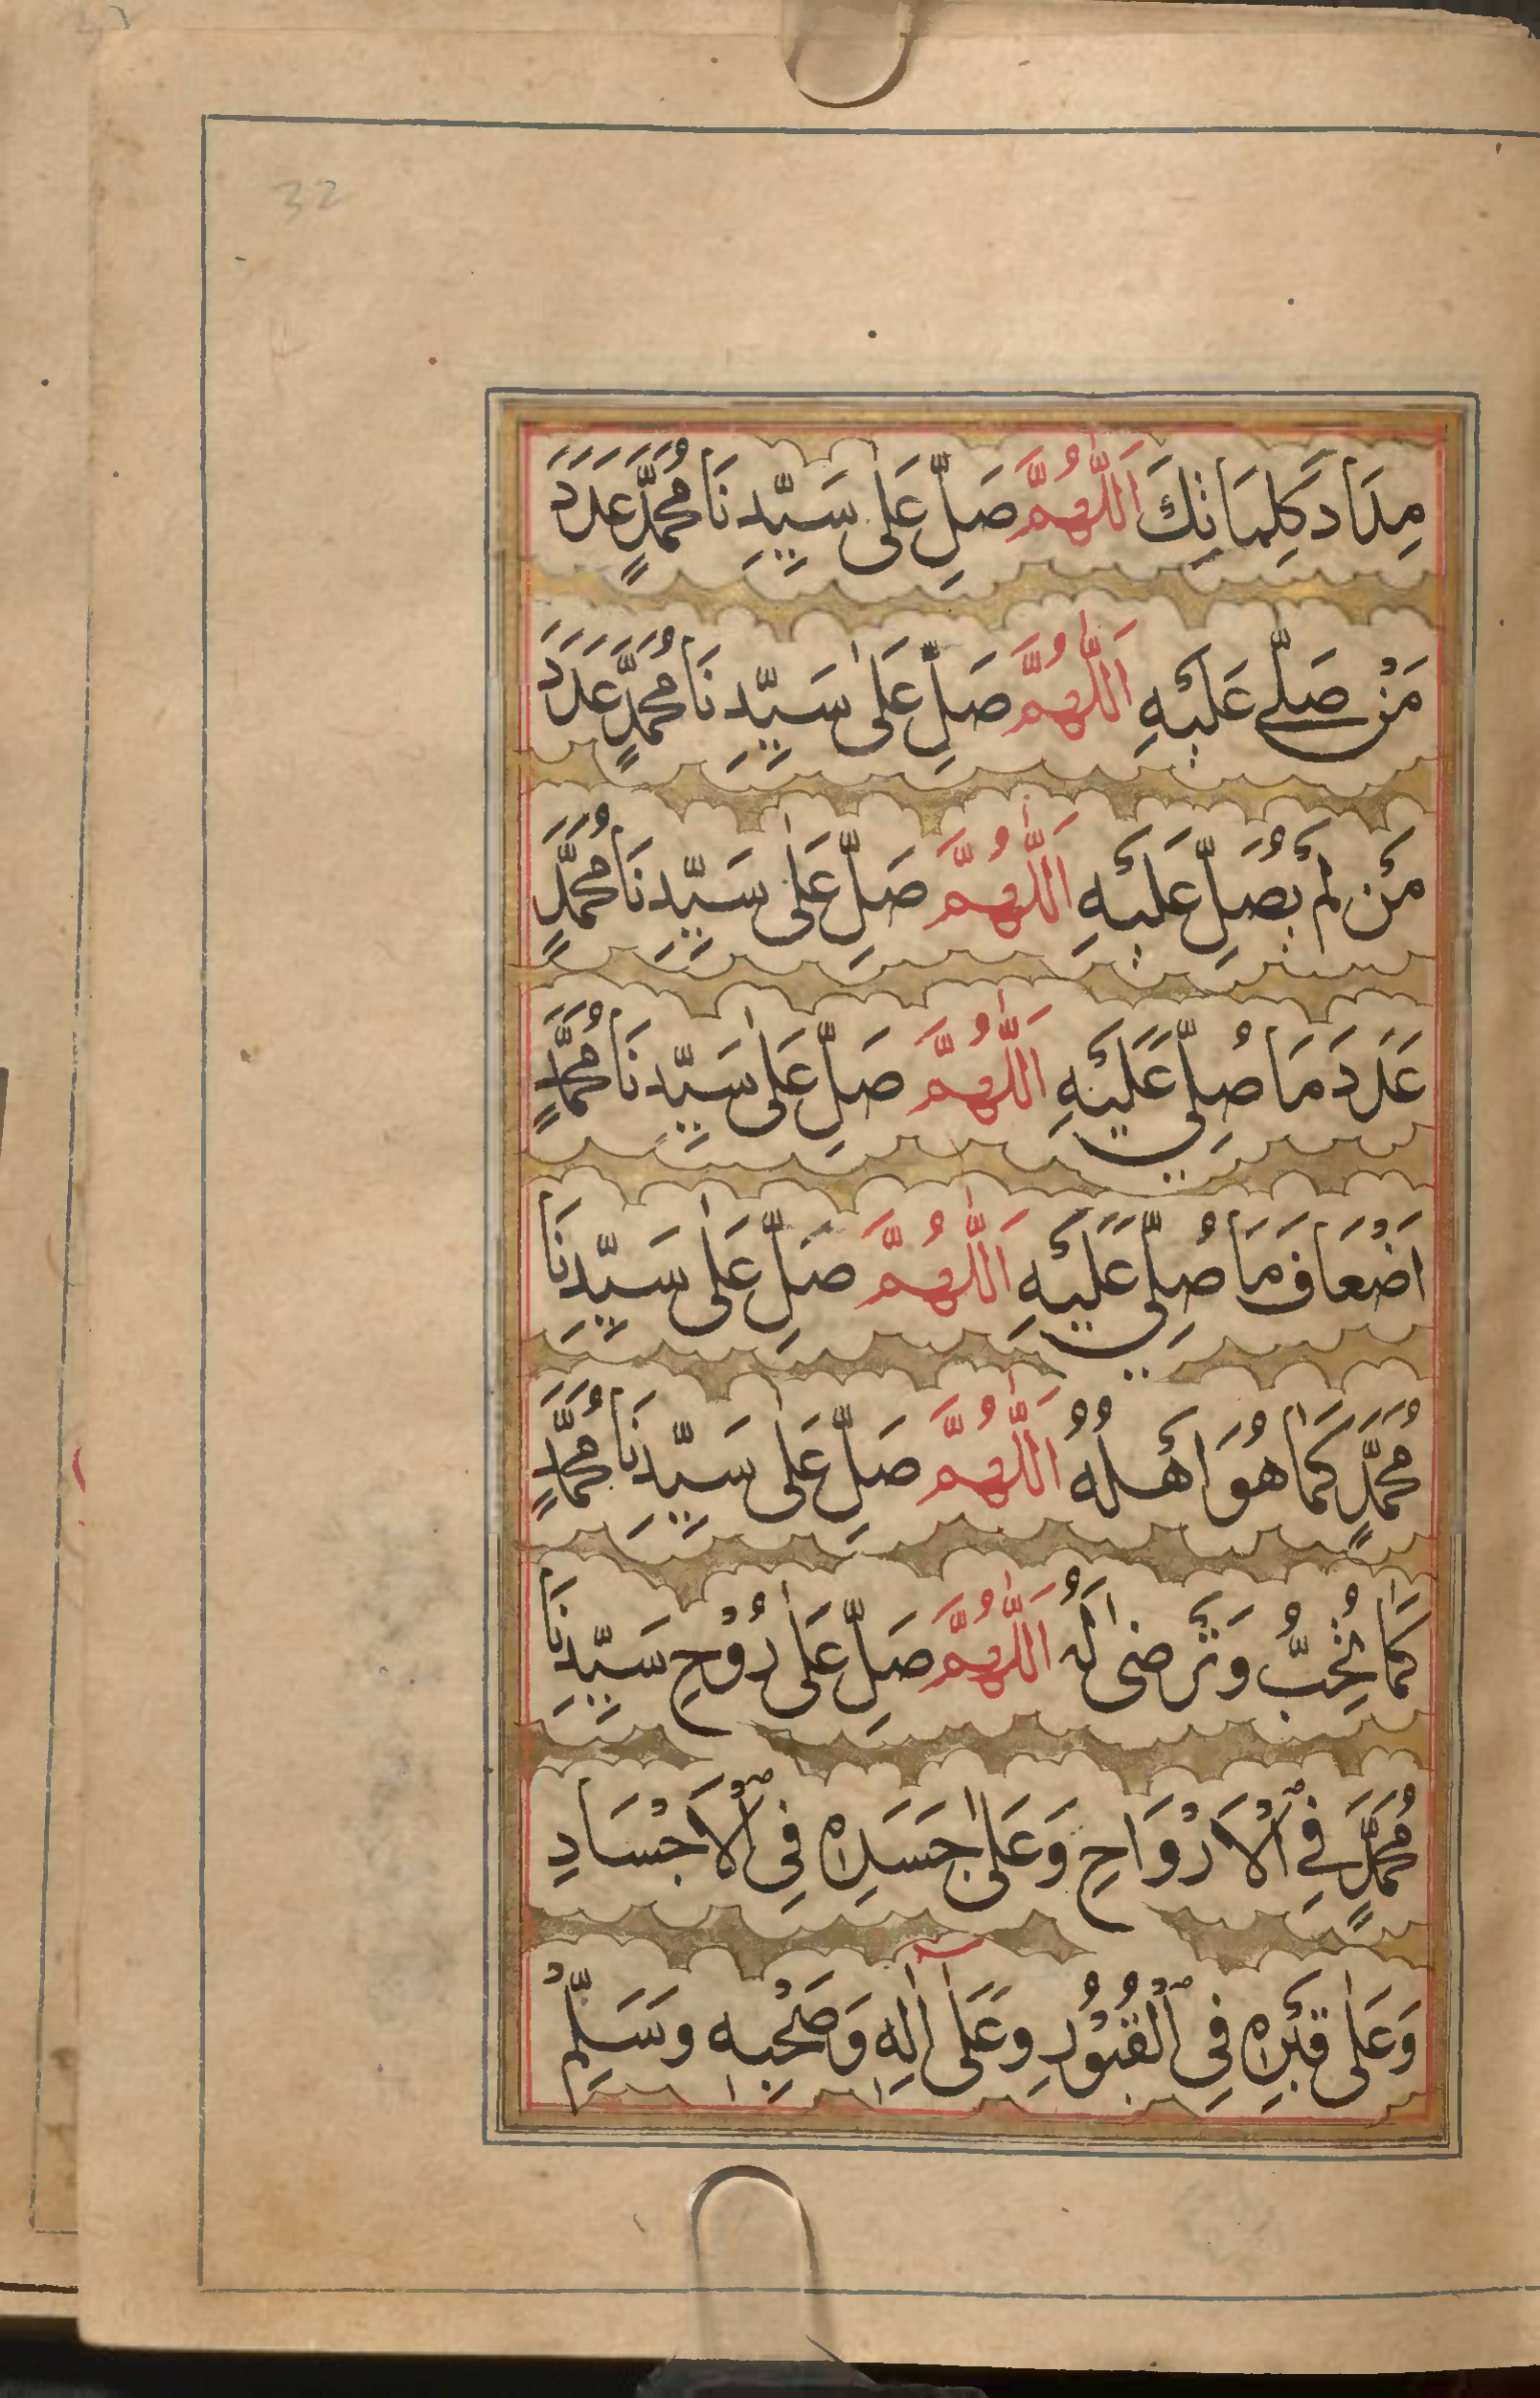 32
مِدَادَ كَلِمَاتِكَ اَللّٰهُمَّ صَلِّ عَلٰى سَيِّدِنَا مُحَمَّدٍ عَدَدَ
مَنْ صَلّٰے عَلَيْهِ اَللّٰهُمَّ صَلِّ عَلٰى سَيِّدِنَا مُحَمَّدٍ عَدَدَ
مَنْ لَمْ يُصَلِّ عَلَيْهِ اَللّٰهُمَّ صَلِّ عَلٰى سَيِّدِنَا مُحَمَّدٍ
عَدَدَ مَا صُلِّيَ عَلَيْهِ اَللّٰهُمَّ صَلِّ عَلٰى سَيِّدِنَا مُحَمَّدٍ
اَضْعَافَ مَا صُلِّيَ عَلَيْهِ اَللّٰهُمَّ صَلِّ عَلٰى سَيِّدِنَا
مُحَمَّدٍ كَمَا هُوَ اَهْلُهُ اَللّٰهُمَّ صَلِّ عَلٰى سَيِّدِنَا مُحَمَّدٍ
كَمَا تُحِبُّ وَتَرْضٰى لَهُ اَللّٰهُمَّ صَلِّ عَلٰى رُوْحِ سَيِّدِنَا
مُحَمَّدٍ فِے الْاَرْوَاحِ وَعَلٰى جَسَدِهٖ فِى الْاَجْسَادِ
وَعَلٰى قَبْرِهٖ فِى الْقُبُوْرِ وَعَلٰى اٰلِهٖ وَصَحْبِهٖ وَسَلِّمْ